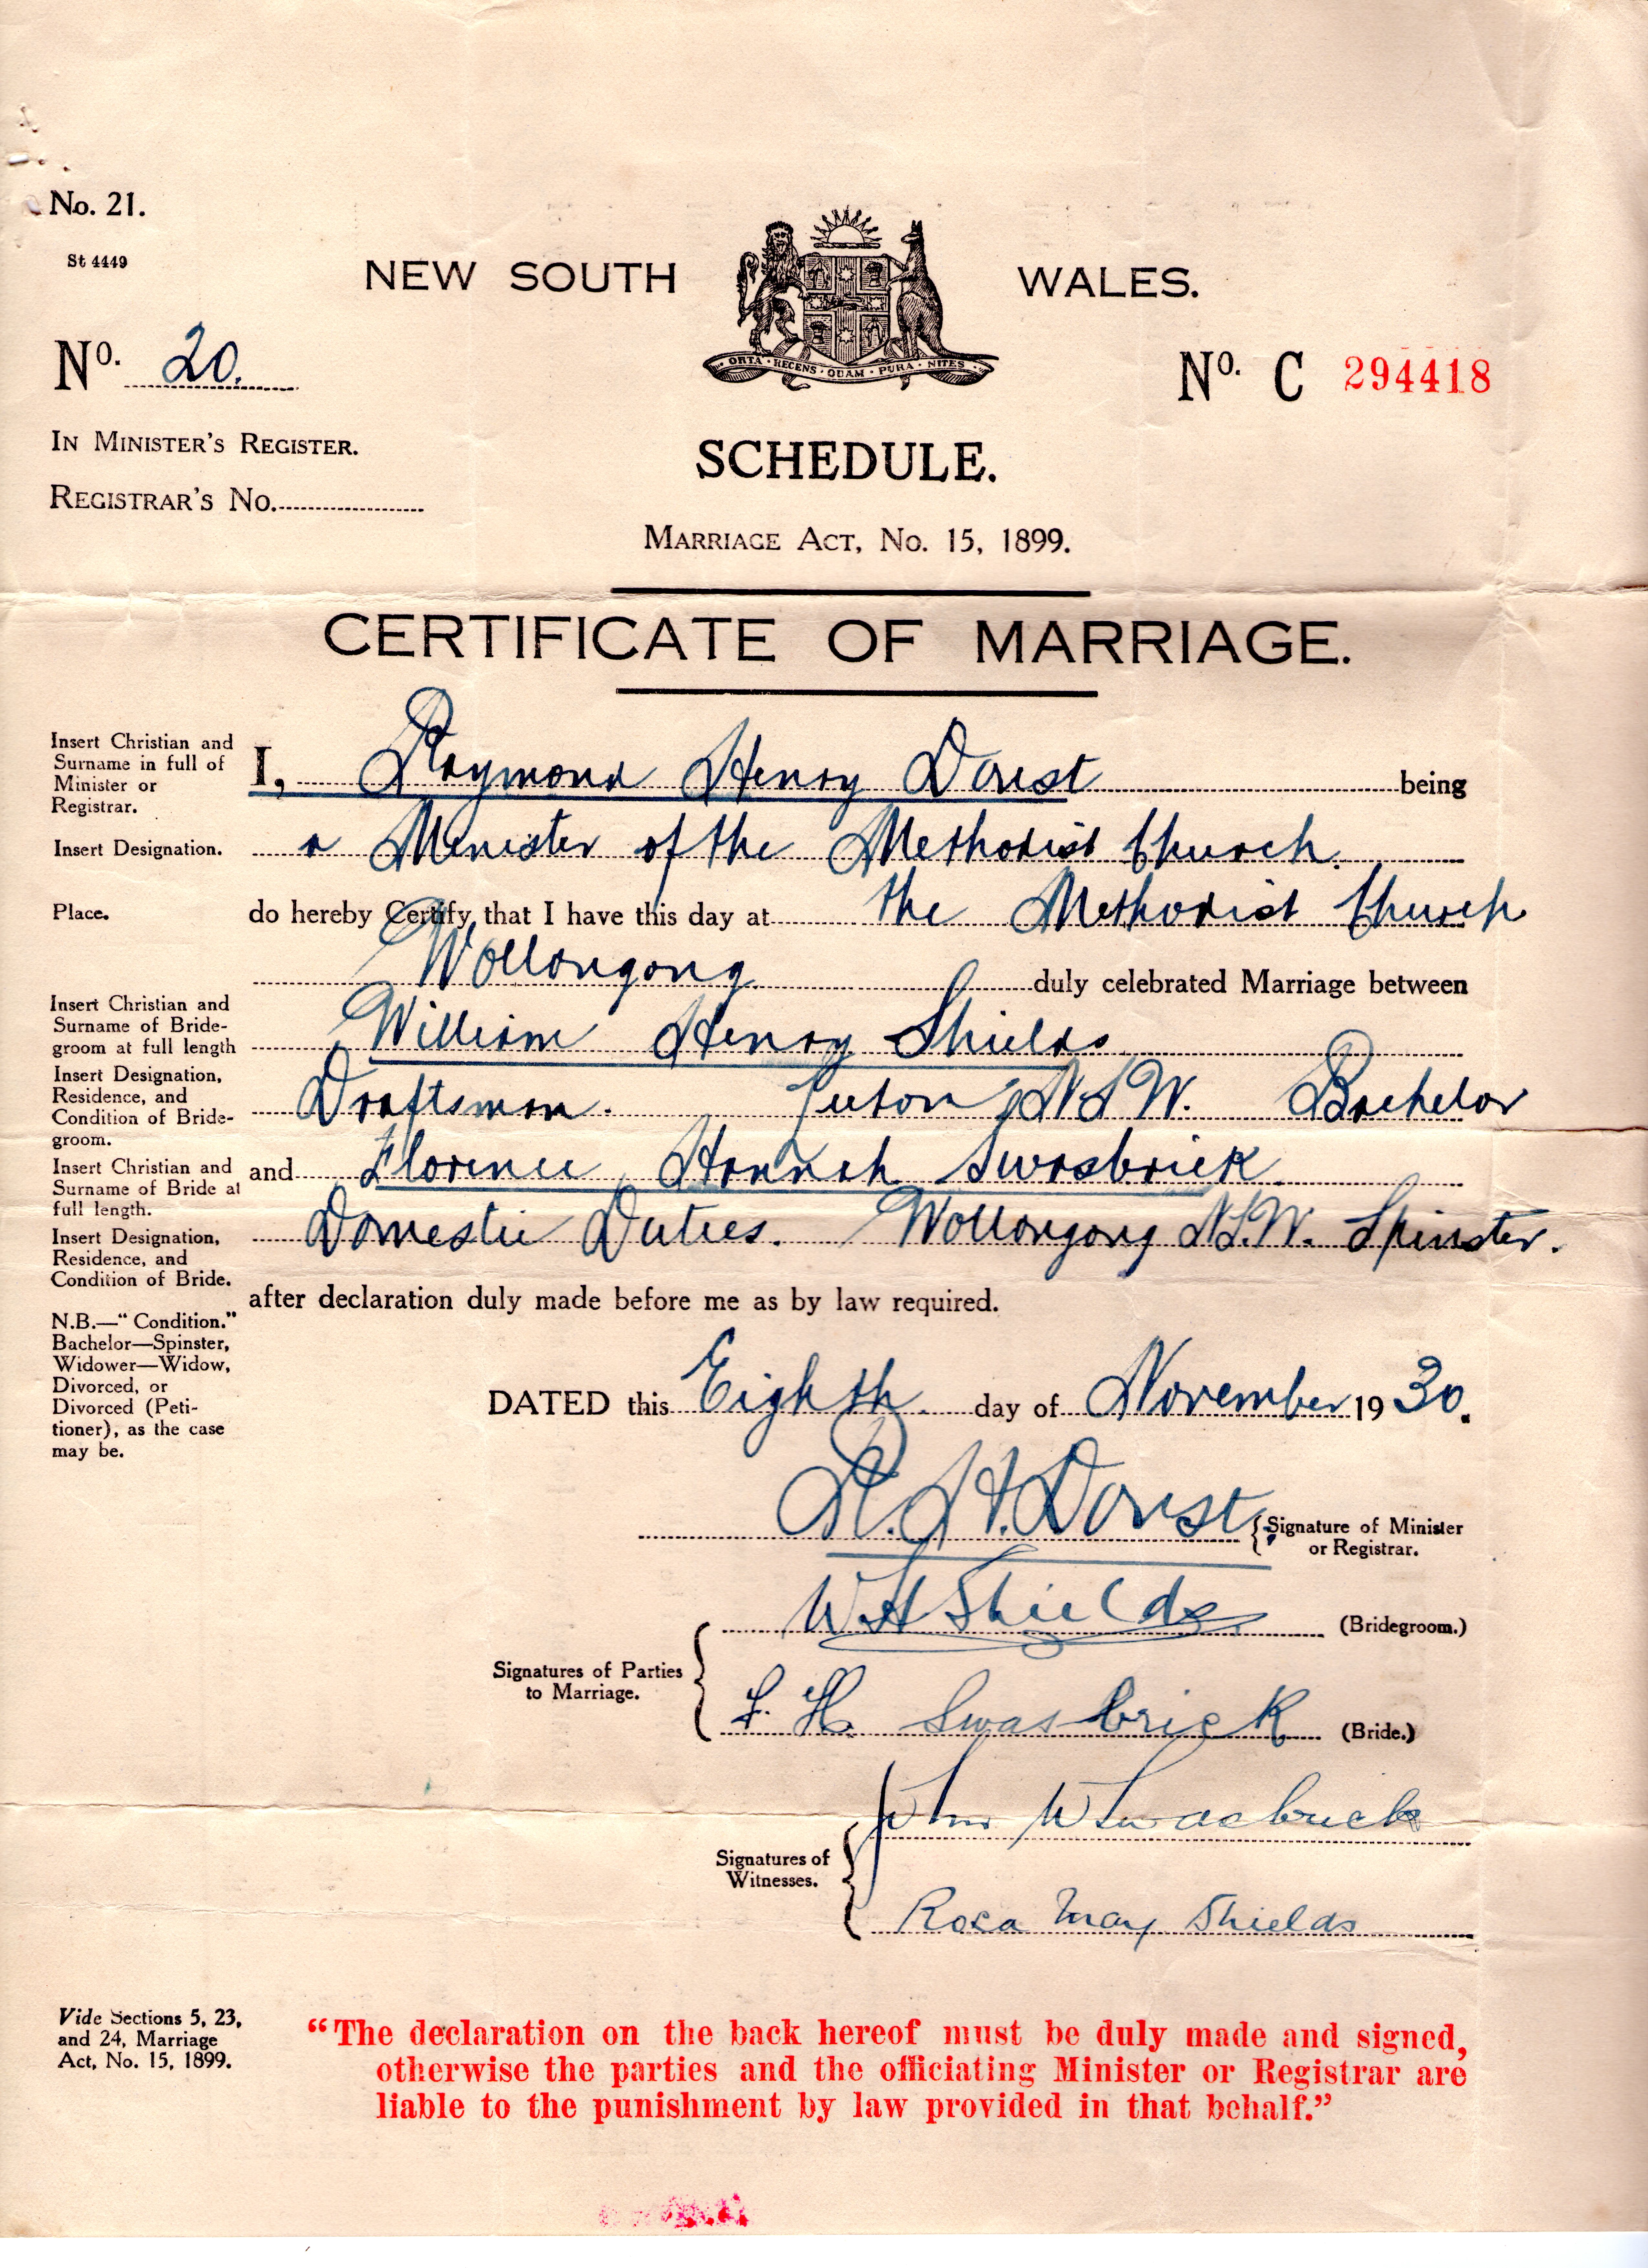 No. 21.
St 4449
NEW SOUTH WALES.
ORTA · RECENS · QUAM · PURA · NITES
No. 20.
No. C 294418
IN MINISTER'S REGISTER.
SCHEDULE.
REGISTRAR'S No.
MARRIAGE ACT, No. 15, 1899.
CERTIFICATE OF MARRIAGE.
Insert Christian and
Surname in full of
Minister or
Registrar.
I, Raymond Henry Dorist being
Insert Designation.
a Minister of the Methodist Church.
Place.
do hereby Certify that I have this day at the Methodist Church
Wollongong duly celebrated Marriage between
Insert Christian and
Surname of Bride-
groom at full length
William Henry Shields
Insert Designation,
Residence, and
Condition of Bride-
groom.
Draftsman. N.S.W. Bachelor
Insert Christian and
Surname of Bride at
full length.
and Florence Hannah Swasbrick
Insert Designation,
Residence, and
Condition of Bride.
Domestic Duties. Wollongong N.S.W. Spinster.
after declaration duly made before me as by law required.
N.B.—"Condition."
Bachelor—Spinster,
Widower—Widow,
Divorced, or
Divorced (Peti-
tioner), as the case
may be.
DATED this Eighth day of November 1930.
R. H. Dorist
Signature of Minister
or Registrar.
W H Shields (Bridegroom.)
Signatures of Parties
to Marriage.
F. H. Swasbrick (Bride.)
John W Swasbrick
Signatures of
Witnesses.
Rosa May Shields
Vide Sections 5, 23,
and 24, Marriage
Act, No. 15, 1899.
"The declaration on the back hereof must be duly made and signed,
otherwise the parties and the officiating Minister or Registrar are
liable to the punishment by law provided in that behalf."